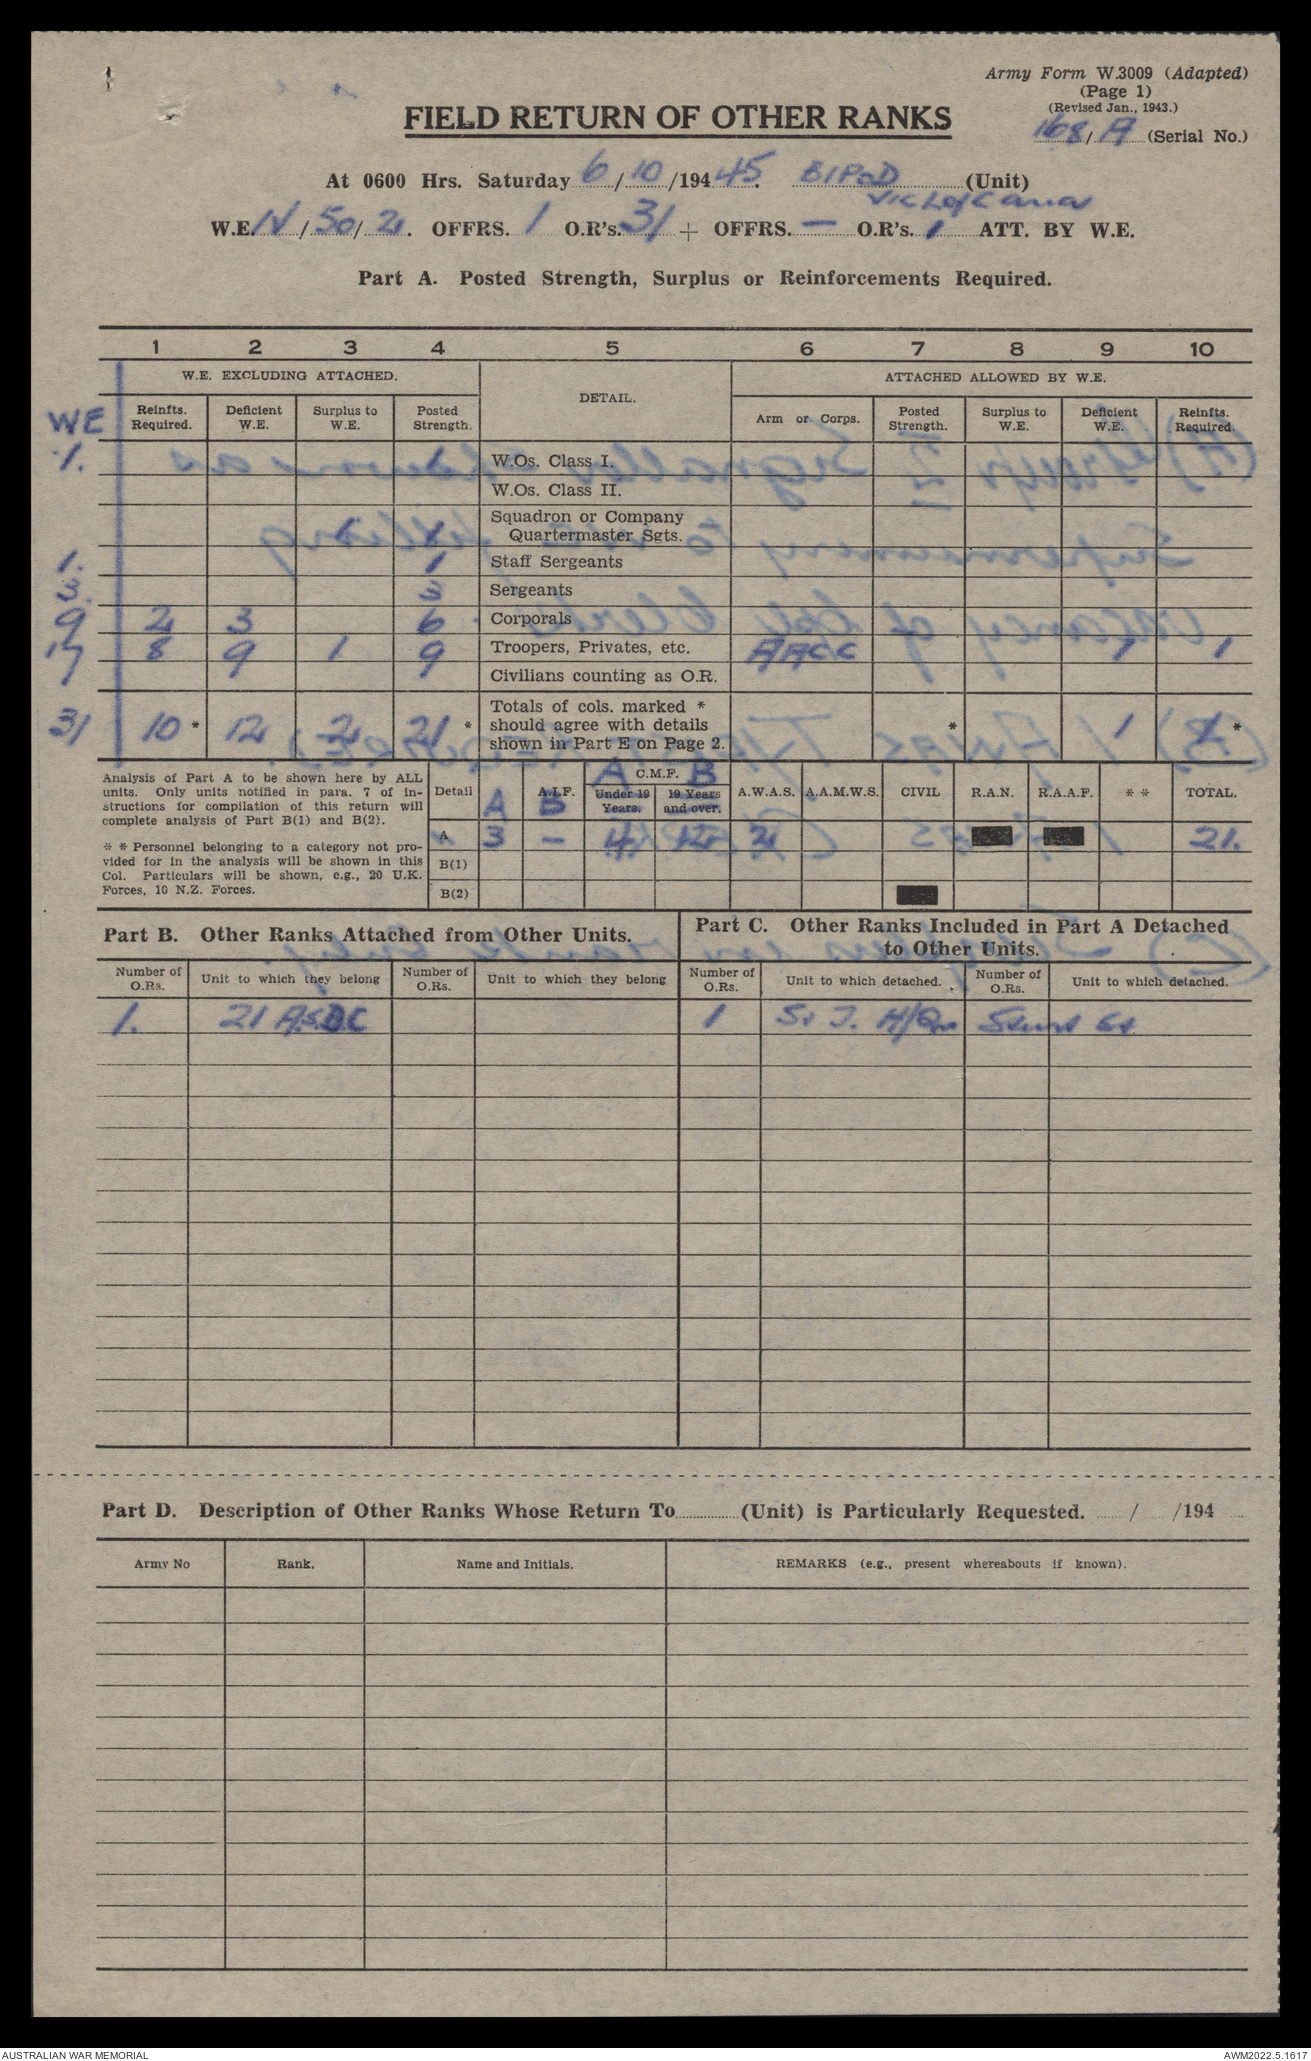 Army Form W.3009 (Adapted)
(Page 1)
(Revised Jan., 1943.)
168/A (Serial No.)
FIELD RETURN OF OTHER RANKS
At 0600 Hrs. Saturday 6/10/19445. BIPOD (Unit)
Vic
W.E. IV/50/2. OFFRS. 1 O.R's. 31 + OFFRS. — O.R's. 1 ATT. BY W.E.
Part A. Posted Strength, Surplus or Reinforcements Required.
1 2 3 4 5 6 7 8 9 10
W.E. EXCLUDING ATTACHED. DETAIL. ATTACHED ALLOWED BY W.E.
WE Reinfts. Required. Deficient W.E. Surplus to W.E. Posted Strength. Arm or Corps. Posted Strength. Surplus to W.E. Deficient W.E. Reinfts. Required.
1. 1 W.Os. Class I.
W.Os. Class II.
1 1 Squadron or Company
Quartermaster Sgts.
1. 1 Staff Sergeants
3. 3 Sergeants
9 2 3 6 Corporals
17 8 9 1 9 Troopers, Privates, etc. AACC 1 1
Civilians counting as O.R.
31 10 * 12 2 21 * Totals of cols. marked *
should agree with details
shown in Part E on Page 2. * 1 *
Analysis of Part A to be shown here by ALL
units. Only units notified in para. 7 of in-
structions for compilation of this return will
complete analysis of Part B(1) and B(2).
* * Personnel belonging to a category not pro-
vided for in the analysis will be shown in this
Col. Particulars will be shown, e.g., 20 U.K.
Forces, 10 N.Z. Forces.
A C.M.F. B
Detail A A.I.F. B Under 19 Years. 19 Years and over. A.W.A.S. A.A.M.W.S. CIVIL R.A.N. R.A.A.F. * * TOTAL.
A 3 — 4 12 2 21.
B(1)
B(2)
Part B. Other Ranks Attached from Other Units.
Part C. Other Ranks Included in Part A Detached
to Other Units.
Number of O.Rs. Unit to which they belong Number of O.Rs. Unit to which they belong Number of O.Rs. Unit to which detached. Number of O.Rs. Unit to which detached.
1. 21 1 St
Part D. Description of Other Ranks Whose Return To (Unit) is Particularly Requested. / /194
Army No Rank. Name and Initials. REMARKS (e.g., present whereabouts if known).
AUSTRALIAN WAR MEMORIAL AWM2022.5.1617